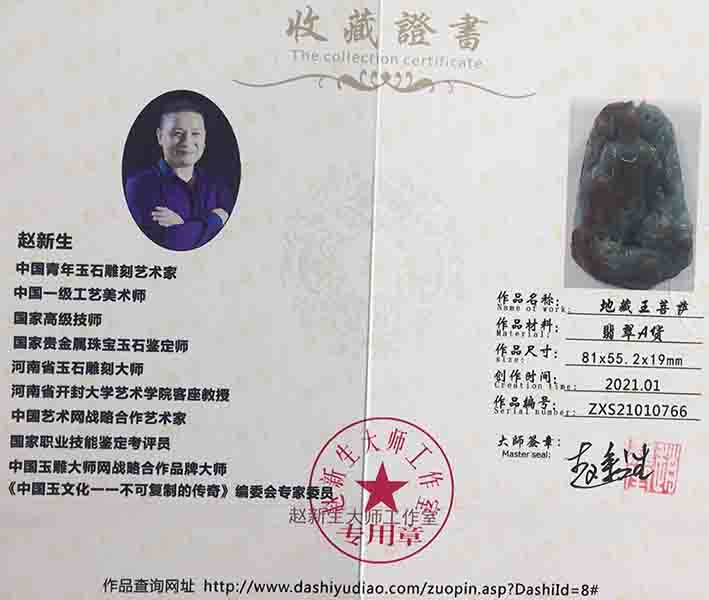 收藏證書
The collection certificate
赵新生
中国青年玉石雕刻艺术家
中国一级工艺美术师
国家高级技师
国家贵金属珠宝玉石鉴定师
河南省玉石雕刻大师
河南省开封大学艺术学院客座教授
中国艺术网战略合作艺术家
国家职业技能鉴定考评员
中国玉雕大师网战略合作品牌大师
《中国玉文化一一不可复制的传奇》编委会专家委员
赵新生大师工作室
赵新生大师工作室
专用章
作品名称: 地藏王菩萨
Name of work:
作品材料: 翡翠A货
Material:
作品尺寸: 81x55.2x19mm
size:
创作时间: 2021.01
Creation time:
作品编号: ZXS21010766
Serial number:
大师签章: 赵新生
Master seal:
作品查询网址 http://www.dashiyudiao.com/zuopin.asp?DashiId=8#